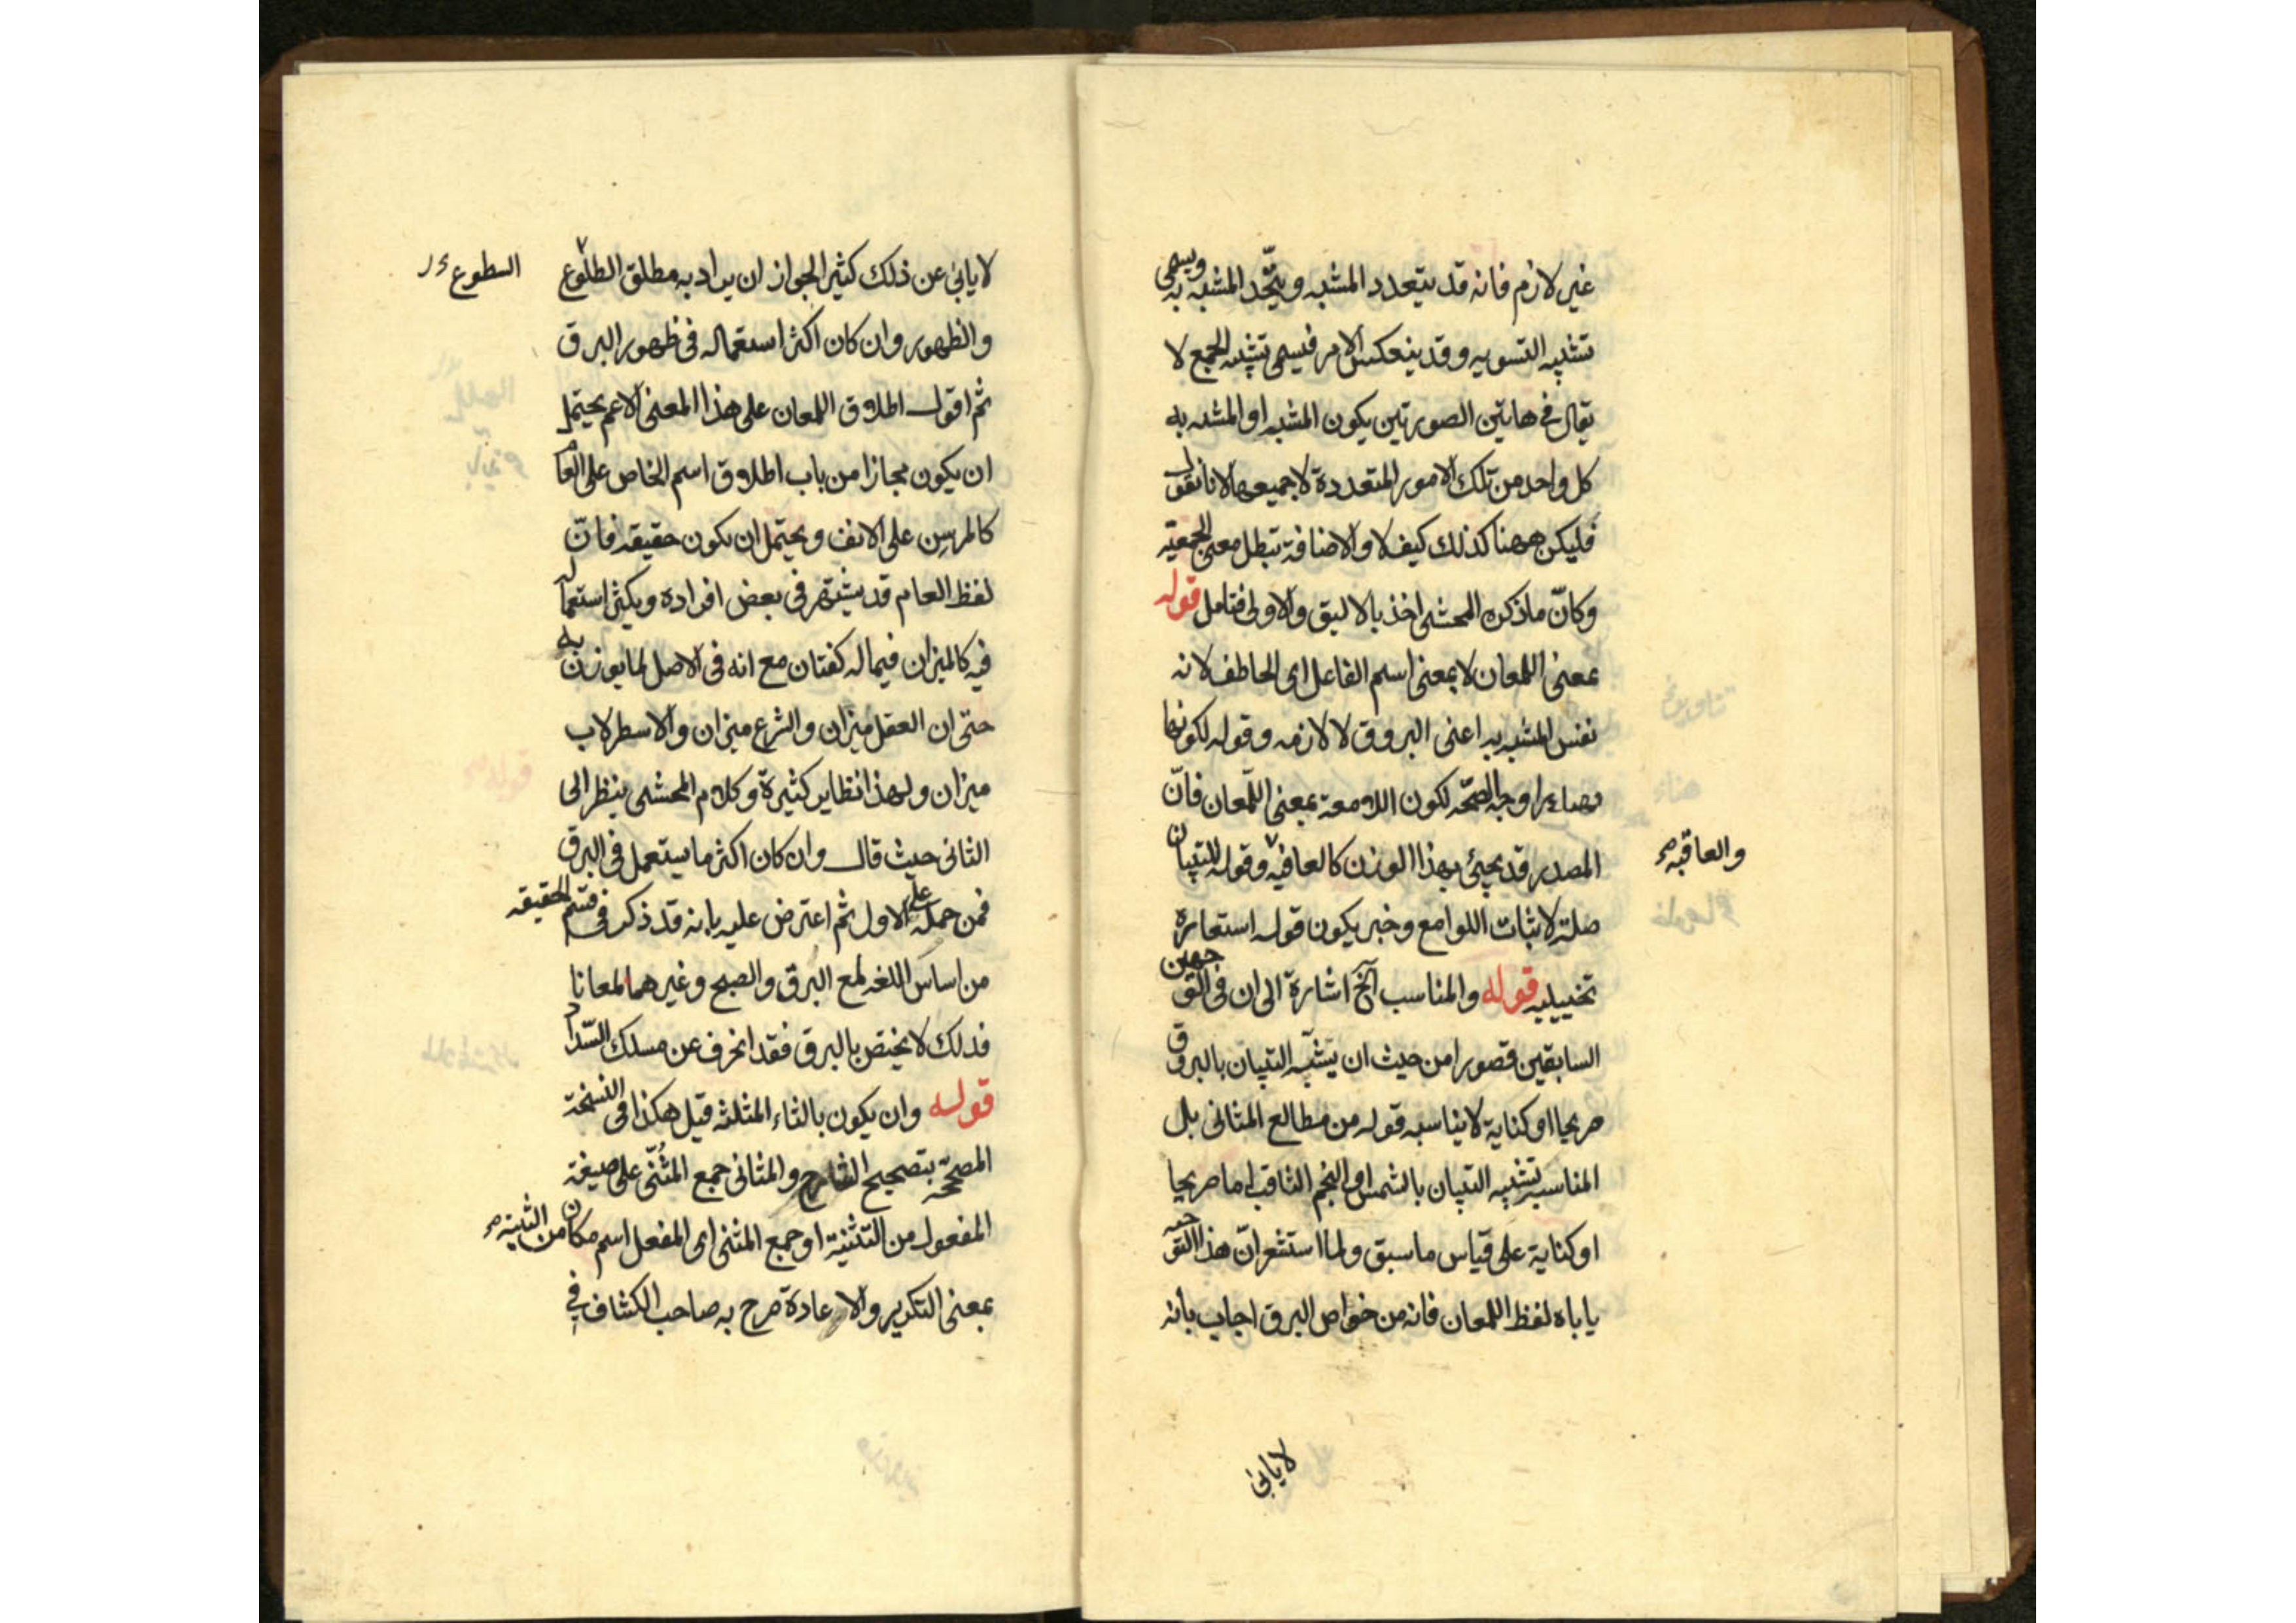 غير لازم فانه قد يتعدد المشبه ويتّحد المشبه به ويسمى
تشبيه التسويه وقد ينعكس الامر فيسمى تشبيه الجمع لا
يقال في هاتين الصورتين يكون المشبه او المشبه به
كل واحد من تلك الامور المتعددة لا جميعها لانا نقول
فليكن ههنا كذلك كيف لا والاضافة تبطل معنى الجمعيّه
وكانّ ما ذكره المحشى اخذ بالاليق والاولى فتامل قوله
بمعنى اللمعان لا بمعنى اسم الفاعل اى الخاطف لانه
نفس المشبه به اعنى البروق لا لازمه وقوله لكونها
مصادرا وجه الصحّه لكون اللامعة بمعنى اللّمعان فانّ
المصدر قد يجيئ بهذا الوزن كالعافيه وقوله للتبيان
والعاقبه صح
صلة لاثبات اللوامع وخبر يكون قوله استعارة
تخييليه قوله والمناسب آلخ اشارة الى ان فى التوجهين
السابقين قصورا من حيث ان يشبّه التبيان بالبروق
صريحا او كناية لا يناسبه قوله من مطالع المثانى بل
المناسب تشبيه التبيان بالشمس او النجم الثاقب اما صريحا
او كناية على قياس ما سبق ولما استشعر انّ هذا التوجيه
ياباه لفظ اللمعان فانه من خواص البرق اجاب بانه
لا يابى
لا يابى عن ذلك كثير الجواز ان يراد به مطلق الطلوع
السطوع
والظهور وان كان اكثر استعماله فى ظهور البرق
ثم اقول اطلاق اللمعان على هذا المعنى الاعم يحتمل
ان يكون مجازا من باب اطلاق اسم الخاص على العام
كالمرسن على الانف ويحتمل ان يكون حقيقه فانّ
لفظ العام قد يشتهر فى بعض افراده ويكثر استعماله
فيه كالميزان فيما له كفتان مع انه فى الاصل لما يوزن به
حتى ان العقل ميزان والشرع ميزان والاسطرلاب
ميزان ولهذا نظاير كثيرة وكلام المحشى ينظر الى
الثانى حيث قال وان كان اكثر ما يستعمل فى البرق
فمن حمله على الاول ثم اعترض عليه بانه قد ذكر فى قسم الحقيقه
من اساس اللغه لمع البرق والصبح وغيرهما لمعانا
فذلك لا يختص بالبرق فقد انحرف عن مسلك السّداد
قوله وان يكون بالثاء المثلثه قيل هكذا فى النسخة
المصحّحه بتصحيح الشارح والمثانى جمع المثنّى على صيغة
المفعول من التثنية او جمع المثنى اى المفعل اسم مكان من التثنية صح
بمعنى التكرير والاعادة صرح به صاحب الكشاف فى